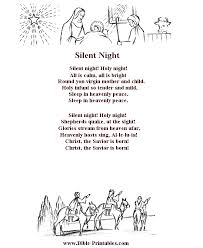 Silent Night
Silent night! Holy night!
All is calm, all is bright
Round you virgin mother and child.
Holy infant so tender and mild,
Sleep in heavenly peace,
Sleep in heavenly peace,
Silent Night
Silent night! Holy night!
Shepherds quake, at the sight!
Glories stream from heaven afar,
Heavenly hosts sing, Al le-lu-ia!
Christ, the Savior is born!
Christ, the Savior is born!
www.Bible-Printables.com